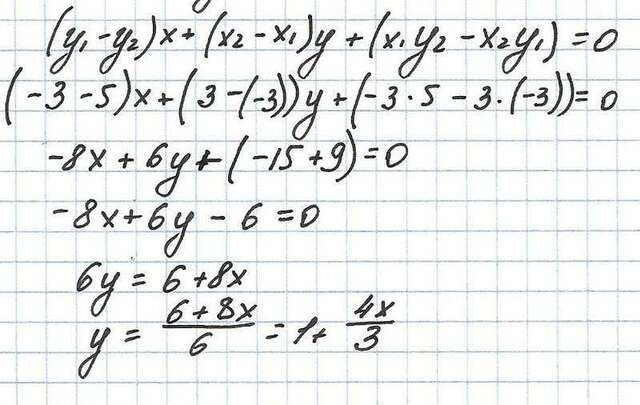 (y₁ - y₂)x + (x₂ - x₁)y + (x₁y₂ - x₂y₁) = 0
(-3 - 5)x + (3 - (-3))y + (-3 · 5 - 3 · (-3)) = 0
-8x + 6y + (-15 + 9) = 0
-8x + 6y - 6 = 0
6y = 6 + 8x
y = (6 + 8x)/6 = 1 + 4x/3